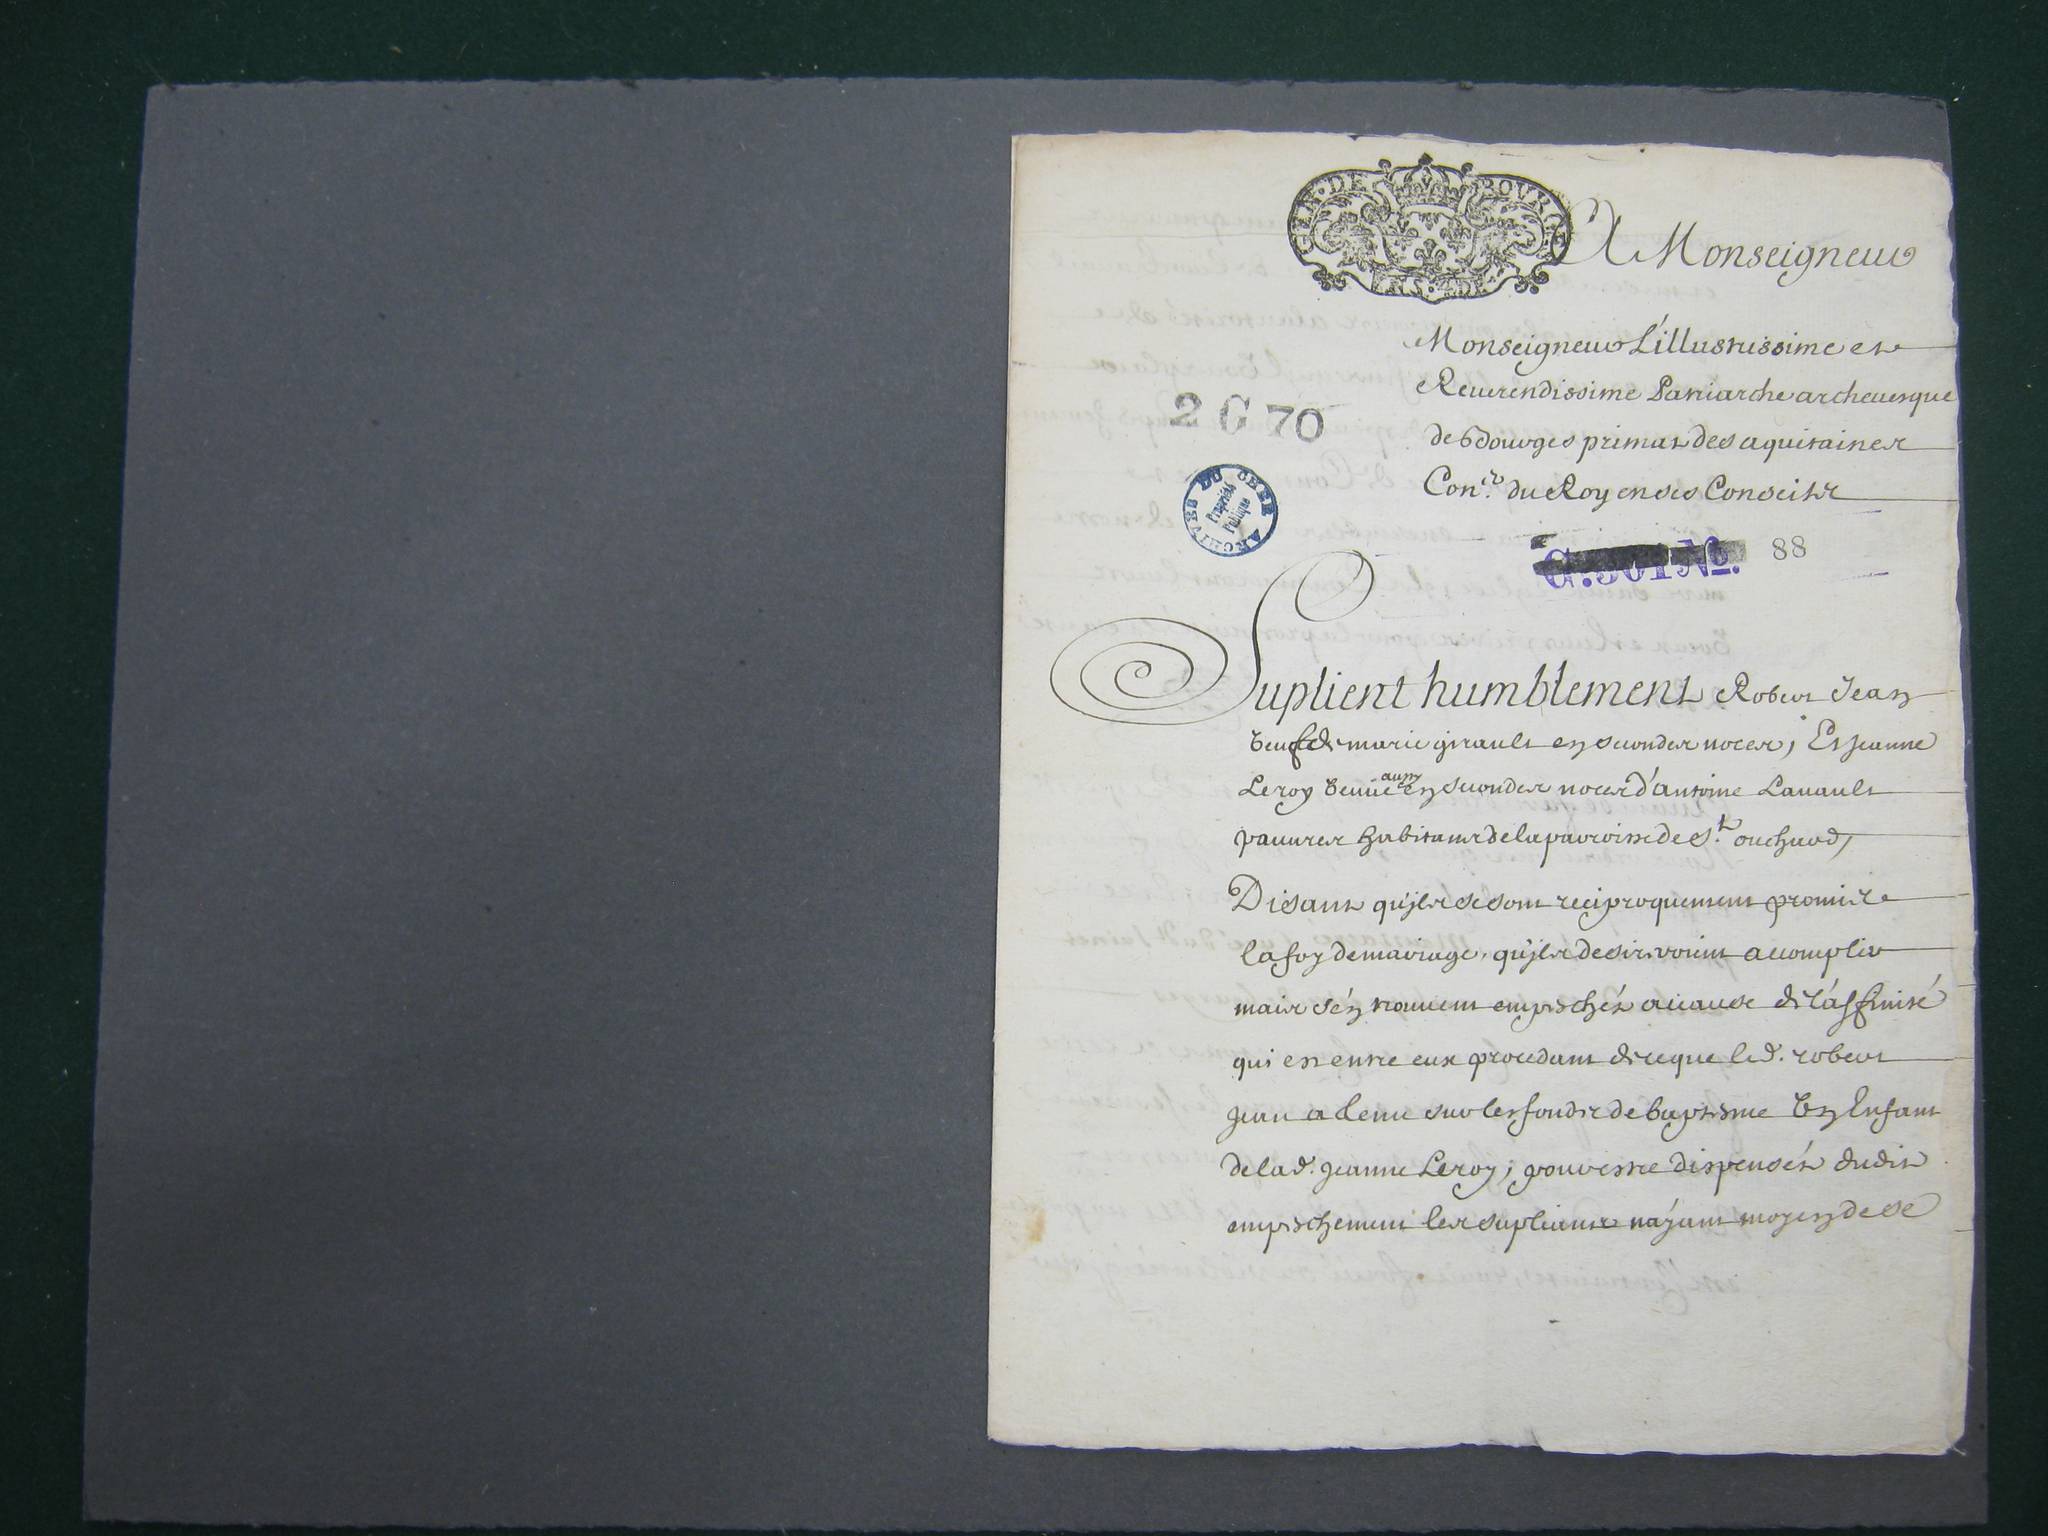 GEN·DE BOURGES
A Monseigneur
Monseigneur L'illustrissime et
Reuerendissime Patriarche archeuesque
de Bourges primat des aquitaines
Con.er du Roy en ses Conseils
2 G 70
ARCHIVES DU CHER
Propriété
Publique
G. 301 No. 88
Suplient humblement Robert Jean
veuf de marie girault en secondes noces, Et jeanne
Leroy veuue aussy en secondes noces d'antoine Lauault
pauures habitans de la parroisse de St. ouchard,
Disant qu'jls se sont reciproquement promis
la foy de mariage, qu'jls desireroient acomplir
mais s'en trouuent empeschés a cause de l'affinité
qui est entre eux procedant de ce que led. robert
jean a tenu sur les fonds de baptesme Un Enfant
de lad. jeanne Leroy; pour estre dispensés dudit
empeschement les supliants n'ayant moyen de se